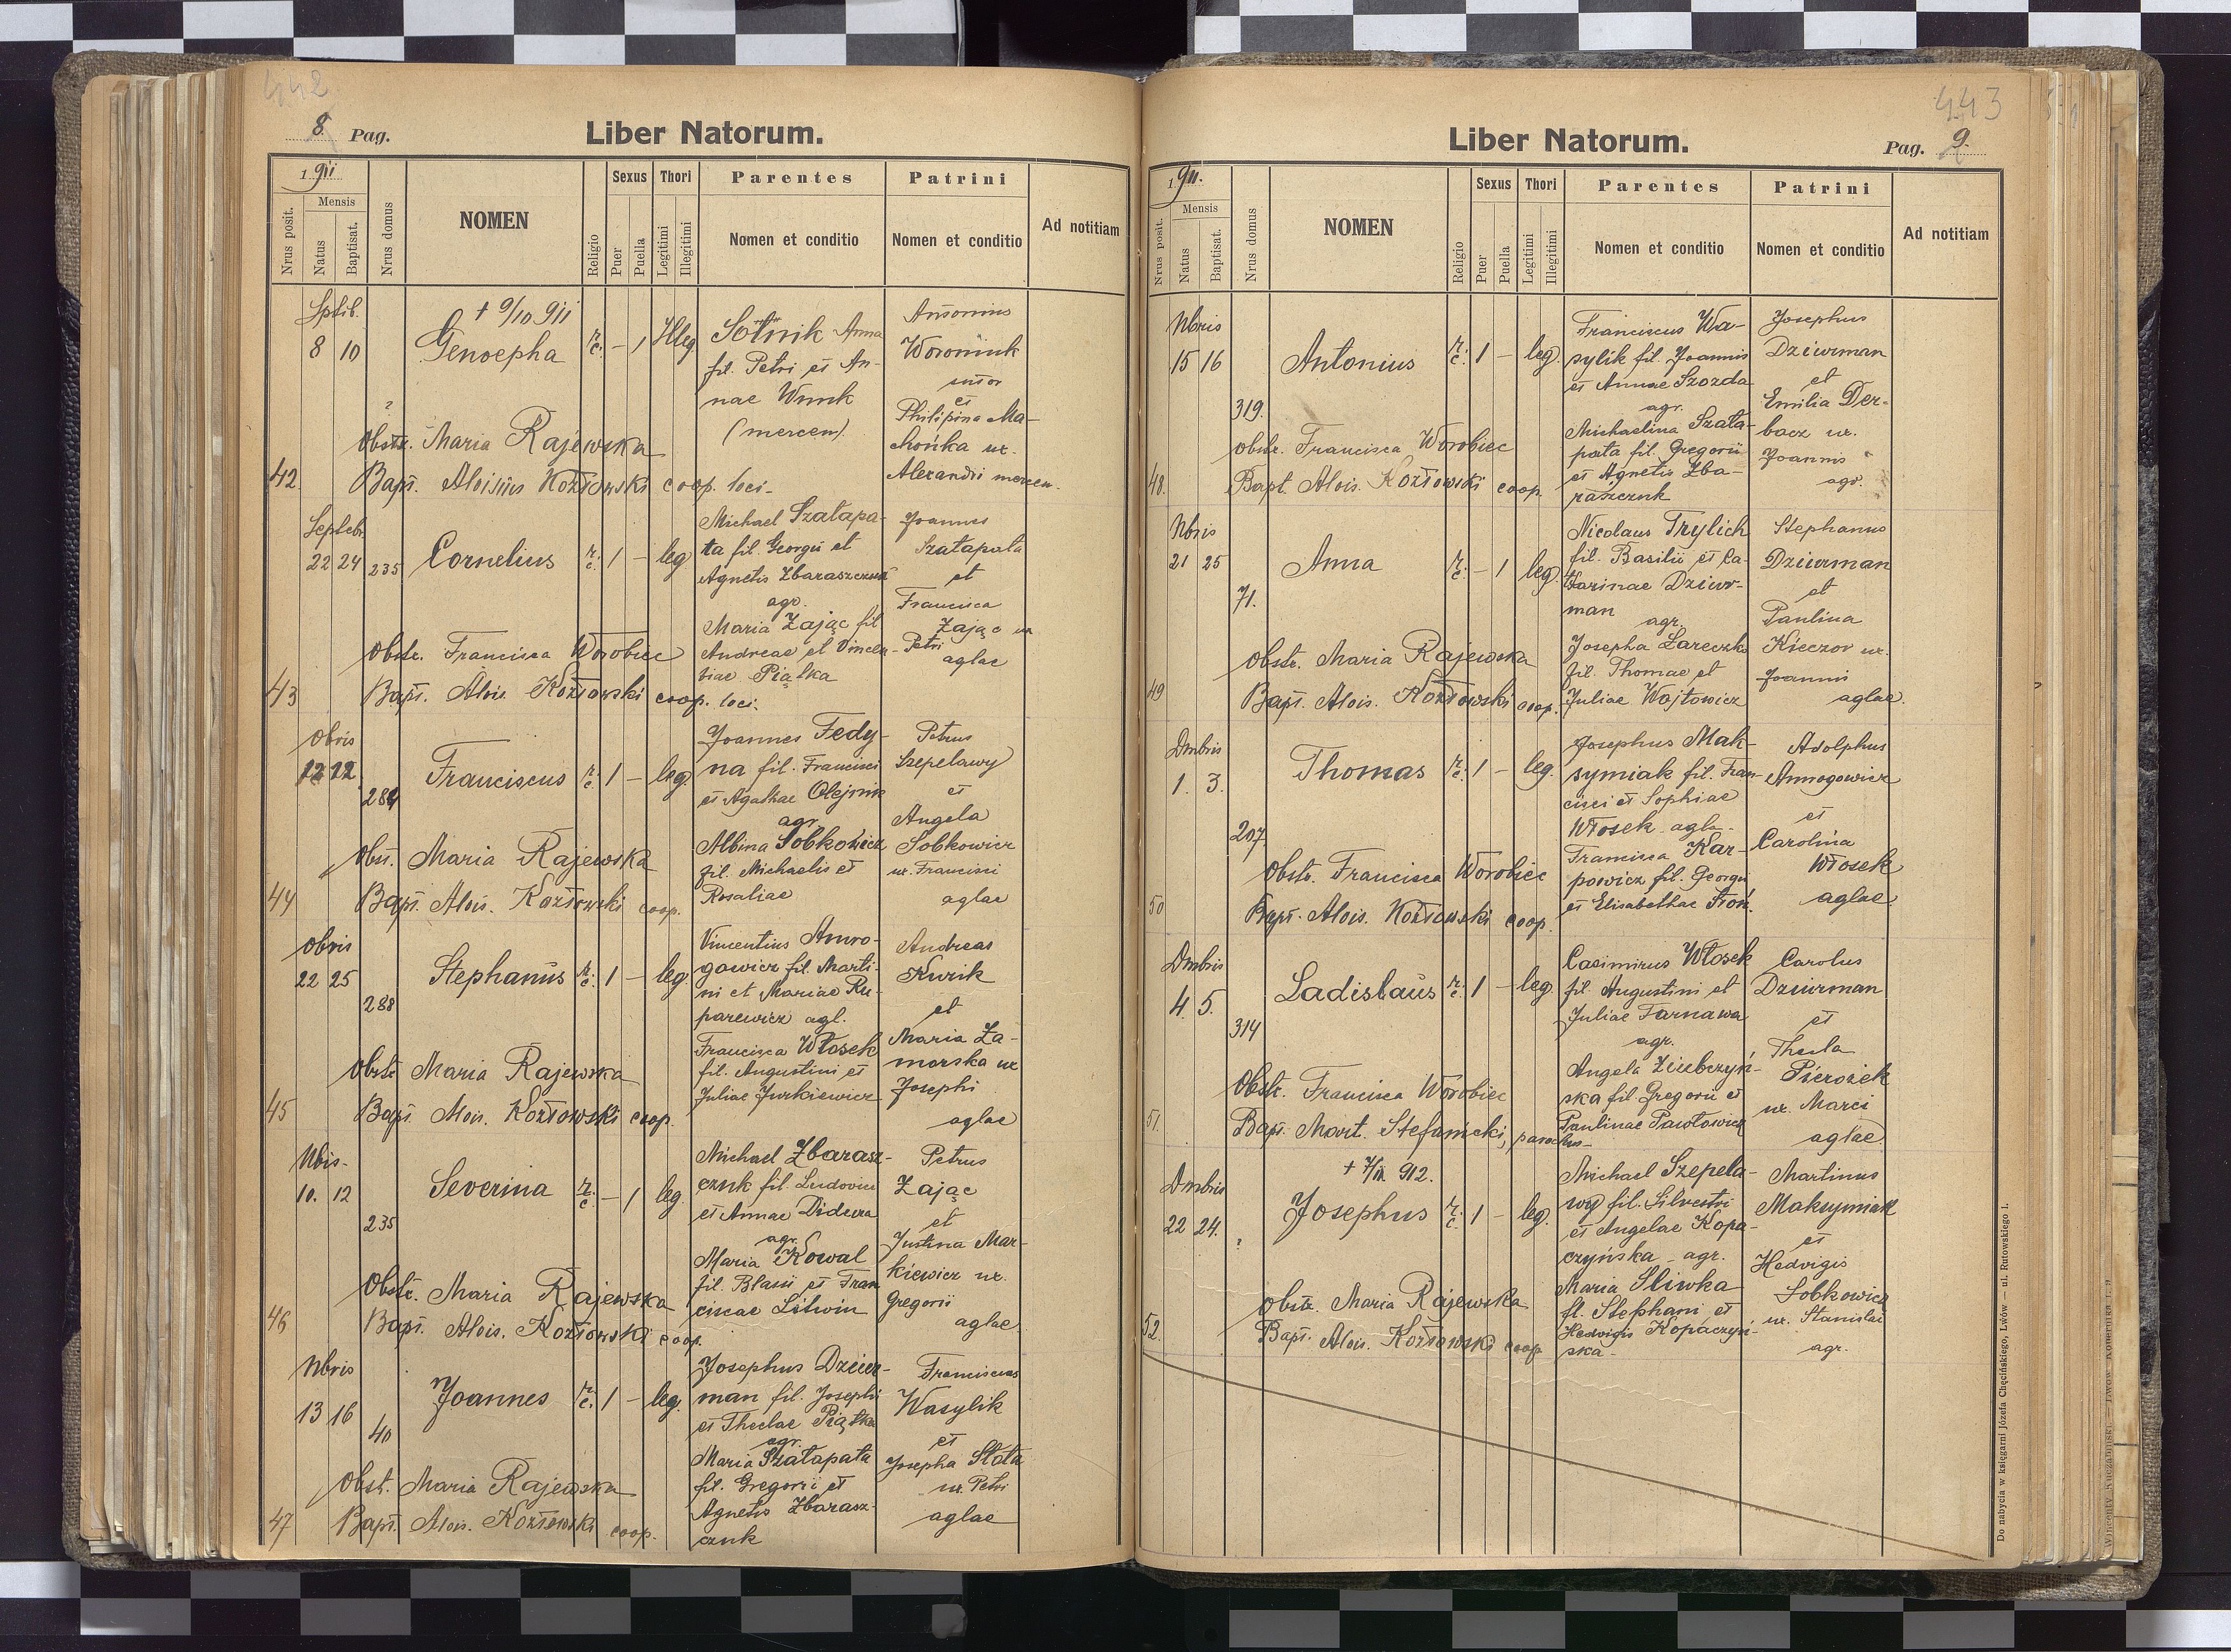 442
8. Pag.
Liber Natorum.
1911
Nrus posit.
Mensis
Natus
Baptisat.
Nrus domus
NOMEN
Religio
Sexus
Puer
Puella
Thori
Legitimi
Illegitimi
Parentes
Nomen et conditio
Patrini
Nomen et conditio
Ad notitiam
Sptb.
8 10
† 9/10 911
Genoepha
r. c. – 1 Illeg
Sotnik Anna
fil. Petri et An-
nae Wnuk
(mercen).
Antonius
Woroniuk
sutor
et
Philipina Ma-
chońka ux.
Alexandri mercen.
?
Obstr. Maria Rajewska
42. Bapt. Aloisius Kozłowski coop. loci-
Septeb.
22 24 235 Cornelius r. c. 1 – leg
Michael Szałapa-
ta fil. Georgii et
Agnetis Zbaraszczuk
agr.
Maria Zając fil
Andreae et Vincen-
tiae Piątka
Joannes
Szałapata
et
Francisca
Zając ux
Petri
aglae
Obstr. Francisca Worobiec
43 Bapt. Alois. Kozłowski coop. loci.
Obris
12 12 284 Franciscus r. c. 1 – leg.
Joannes Fedy-
na fil. Francisci
et Agathae Olejnik
agr.
Albina Sobkowicz
fil. Michaelis et
Rosaliae
Petrus
Szepelawy
et
Angela
Sobkowicz
ux. Francisci
aglae
Obst. Maria Rajewska
44 Bapt. Alois. Kozłowski coop.
Obris
22 25 288 Stephanus r. c. 1 – leg
Vincentius Amro-
gowicz fil. Marti-
ni et Mariae Ku-
parewicz agl.
Francisca Włosek
fil. Augustini et
Juliae Jurkiewicz
Andreas
Kurik
et
Maria Za-
morska ux
Josephi
aglae
Obstr Maria Rajewska
45 Bapt. Alois. Kozłowski coop.
Nbis-
10. 12 235 Severina r. c. – 1 leg.
Michael Zbarasz-
czuk fil. Ludovici
et Annae Didura
agr.
Maria Kowal
fil. Blasii et Fran
ciscae Litwin
Petrus
Zając
et
Justina Mar-
kiewicz ux.
Gregorii
aglae
Obstr. Maria Rajewska
46 Bapt. Alois. Kozłowski coop.
Nbris
13 16 40 Joannes r. c. 1 – leg.
Josephus Dziur-
man fil. Josephi
et Theclae Piątka
agr.
Maria Szałapata
fil. Gregorii et
Agnetis Zbarasz-
czuk
Franciscus
Wasylik
et
Josepha Słota
ux. Petri
aglae
Obst. Maria Rajewska
47 Bapt. Alois. Kozłowski coop.
443
Liber Natorum.
Pag. 9.
1911.
Nrus posit.
Mensis
Natus
Baptisat.
Nrus domus
NOMEN
Religio
Sexus
Puer
Puella
Thori
Legitimi
Illegitimi
Parentes
Nomen et conditio
Patrini
Nomen et conditio
Ad notitiam
Nbris
15 16 319. Antonius r. c. 1 – leg.
Franciscus Wa-
sylik fil. Joannis
et Annae Szozda
agr.
Michaelina Szała-
pata fil. Gregorii
et Agnetis Zba-
raszczuk
Josephus
Dziurman
et
Emilia Der-
bacz ux.
Joannis
agr.
Obstr. Francisca Worobiec
48. Bapt. Alois. Kozłowski coop.
Nbris
21 25 71. Anna r. c. – 1 leg.
Nicolaus Trylich
fil. Basilii et Ca-
tharinae Dziur-
man
agr.
Josepha Zareczka
fil. Thomae et
Juliae Wojtowicz
Stephanus
Dziurman
et
Paulina
Kieczor ux.
Joannis
aglae.
Obstr. Maria Rajewska
49 Bapt. Alois. Kozłowski coop.
Dmbris
1. 3. 207. Thomas r. c. 1 – leg.
Josephus Mak-
symiak fil. Fran-
cisci et Sophiae
Włosek agla-
Francisca Kar-
powicz fil. Georgii
et Elisabethae Stoń.
Adolphus
Amrogowicz
et
Carolina
Włosek
aglae.
Obstr. Francisca Worobiec
50 Bapt. Alois. Kozłowski coop.
Dmbris
4. 5. 314 Ladislaus r. c. 1 – leg.
Casimirus Włosek
fil. Augustini et
Juliae Tarnawa
agr.
Angela Ziembczyń-
ska fil. Gregorii et
Paulinae Pawłowicz
Carolus
Dziurman
et
Thecla
Pierożek
ux. Marci
aglae.
Obstr. Francisca Worobiec
51. Bapt. Mart. Stefanicki, parochus-
† 7/III. 912.
Dmbris
22 24. ? Josephus r. c. 1 – leg.
Michael Szepela-
wy fil. Silvestri
et Angelae Kopa-
czyńska agr.
Maria Sliwka
fil. Stephani et
Hedvigis Kopaczyń-
ska-
Martinus
Maksymiak
et
Hedvigis
Sobkowicz
ux. Stanislai
agr.
Obstr. Maria Rajewska
52. Bapt. Alois. Kozłowski coop
Do nabycia w księgarni Józefa Chęcińskiego, Lwów — ul. Rutowskiego 1.